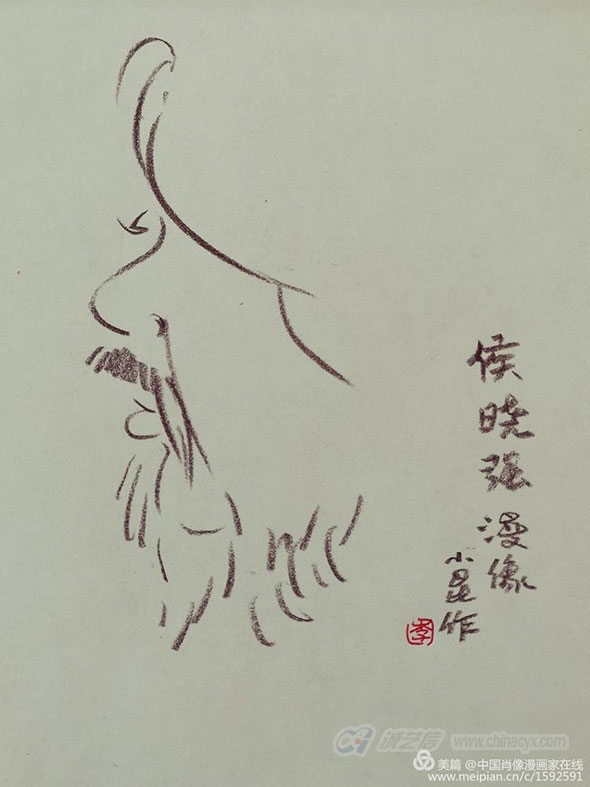 侯晓强漫像
小昆作
季
诚艺信 www.chinacyx.com
美篇 @中国肖像漫画家在线
www.meipian.cn/c/1592591